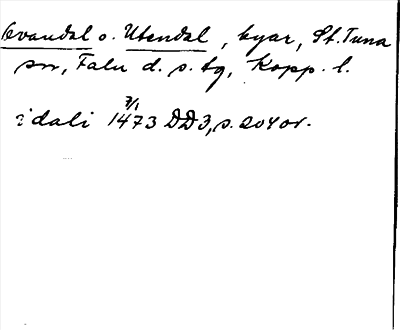 Övandal o. Utendal, byar, St. Tuna
sn, Falu d. s. tg, Kopp. l.
7/1
i dali 1473 DD3, s. 204 or.